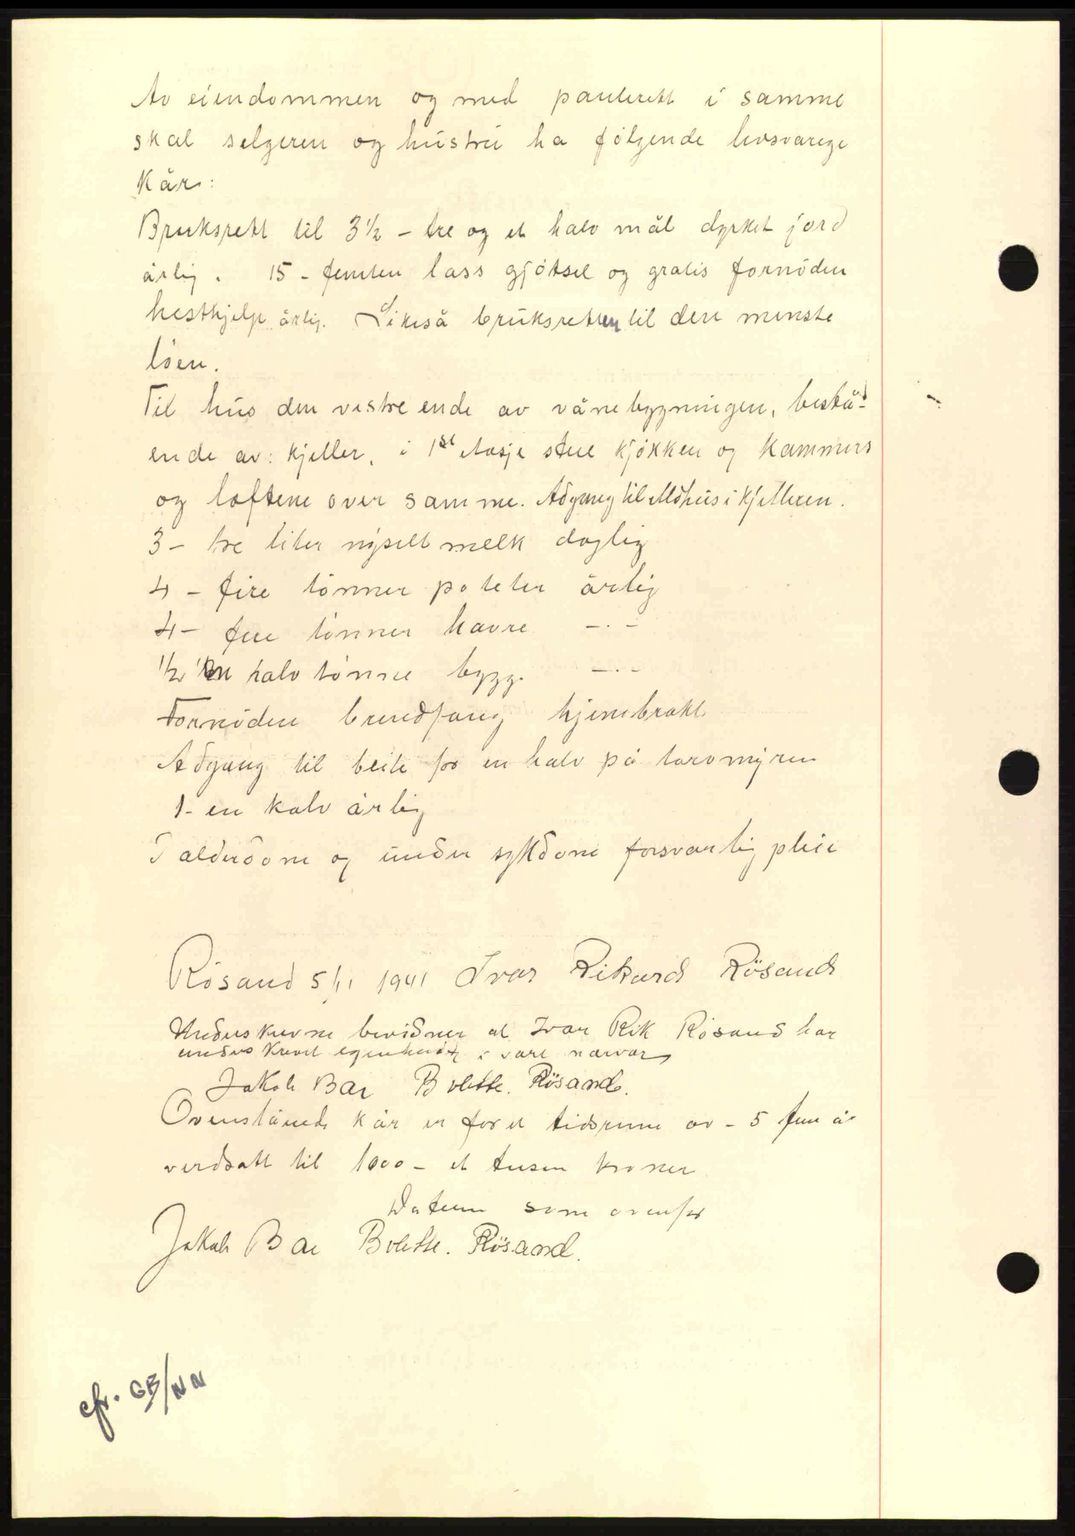 Av eiendommen og med panterett i samme
skal selgeren og hustru ha følgende livsvarige
kår:
Bruksrett til 3½ - tre og et halv mål dyrket jord
årlig. 15 - femten lass gjødsel og gratis fornøden
hesthjelp årlig. Likeså bruksretten til den minste
løen.
Til hus den vestre ende av vånebygningen, bestå-
ende av: kjeller, i 1ste etasje stue kjøkken og kammers
og loftene over samme. Adgang til ildhus i kjelleren.
3 - tre liter nysilt melk daglig
4 - fire tønner poteter årlig
4 - fire tønner havre -.-
½ en halv tønne bygg. -.-
Fornøden brendfang hjembrakt
Adgang til beite for en kalv på torvmyren
1 - en kalv årlig
I alderdom og under sykdom forsvarlig pleie
Røsand 5/1 1941 Ivar Rikard Røsand
Underskrevne bevidner at Ivar Rik Røsand har
underskrevet egenhendig i vårt nærvær
Jakob Bae Bolette. Røsand.
Ovenstånde kår er for et tidsrum av - 5 fem år
verdsatt til 1000 - et tusen kroner
Datum som ovenfor
Jakob Bae Bolette. Røsand.
cfr. GB/NN